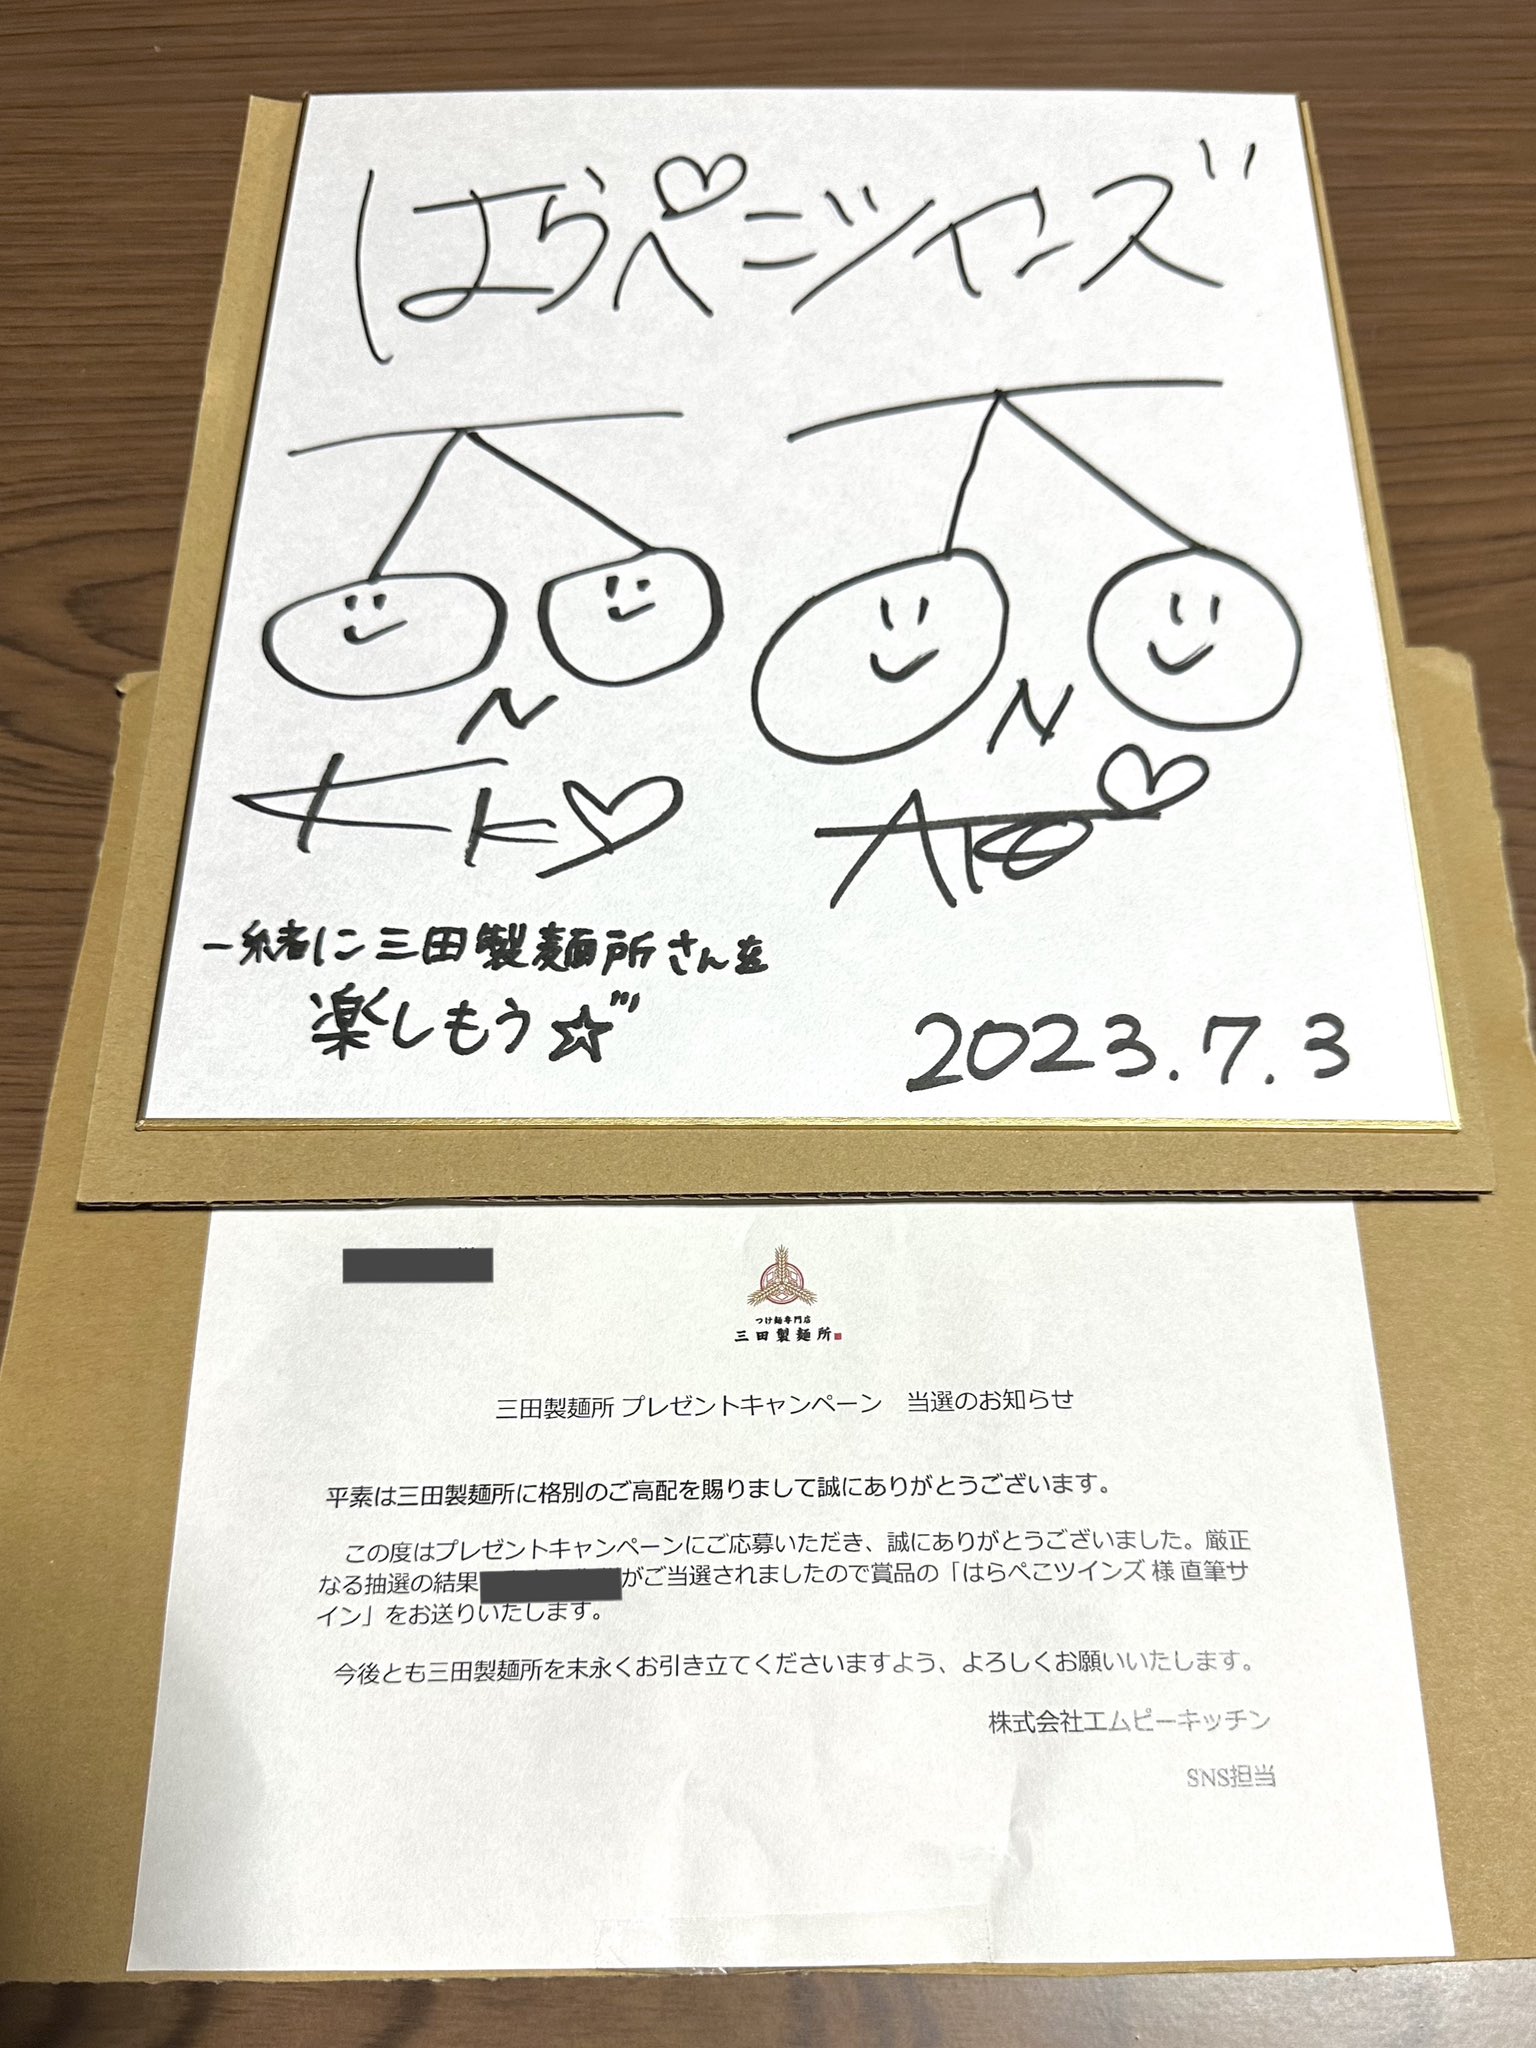 はらぺこツインズ
N
N
AKO
一緒に三田製麺所さんを
楽しもう☆
2023.7.3
つけ麺専門店
三田製麺所
三田製麺所 プレゼントキャンペーン　当選のお知らせ
平素は三田製麺所に格別のご高配を賜りまして誠にありがとうございます。
この度はプレゼントキャンペーンにご応募いただき、誠にありがとうございました。厳正
なる抽選の結果がご当選されましたので賞品の「はらぺこツインズ 様 直筆サ
イン」をお送りいたします。
今後とも三田製麺所を末永くお引き立てくださいますよう、よろしくお願いいたします。
株式会社エムピーキッチン
SNS担当